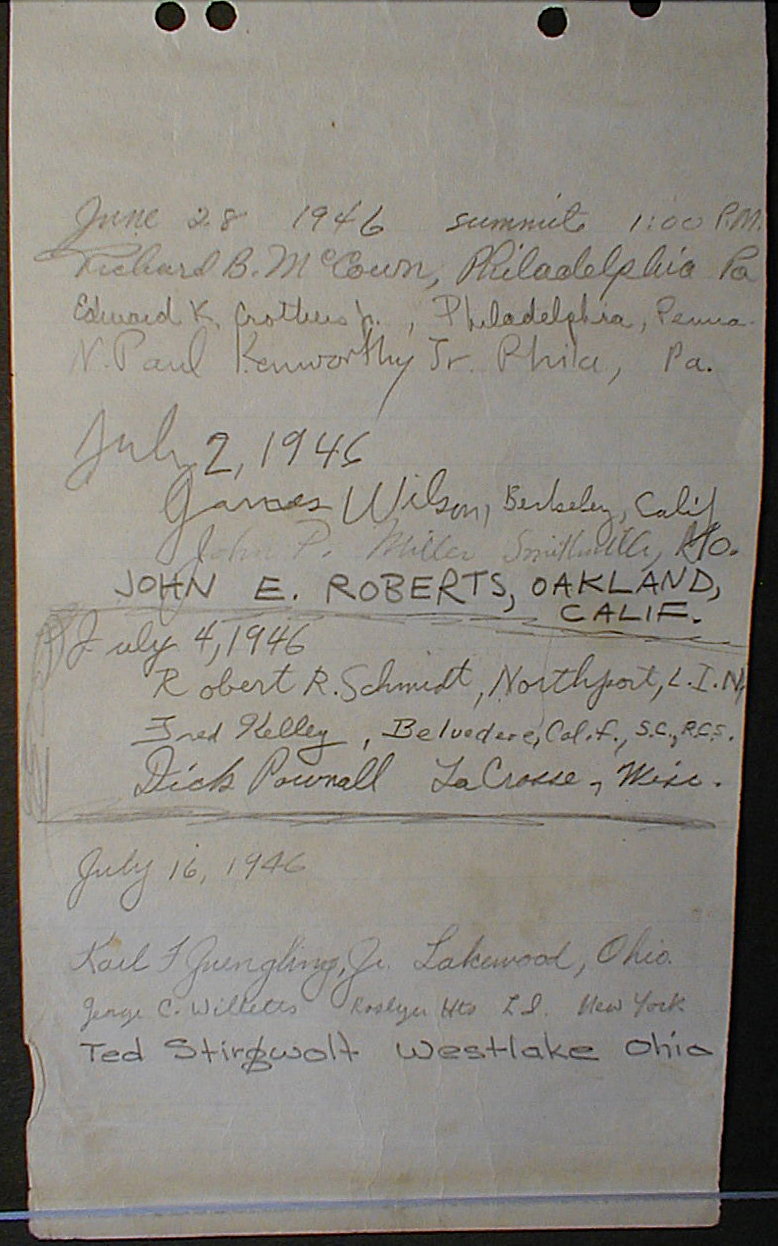 June 28 1946 summit 1:00 P.M.
Richard B. McCown, Philadelphia Pa
Edward K. Crothers Jr., Philadelphia, Penna.
N. Paul Kenworthy Jr. Phila, Pa.
July 2, 1946
James Wilson, Berkeley, Calif
John P. Miller Smithville,
JOHN E. ROBERTS, OAKLAND,
CALIF.
July 4, 1946
Robert R. Schmidt, Northport, L.I.N.
Fred Kelley, Belvedere, Calif., S.C., R.C.S.
Dick Pownall LaCrosse, Wisc.
July 16, 1946
Karl F Juengling, Jr. Lakewood, Ohio.
George C. Willetts Roslyn Hts L.I. New York
Ted Stirgwolt Westlake Ohio